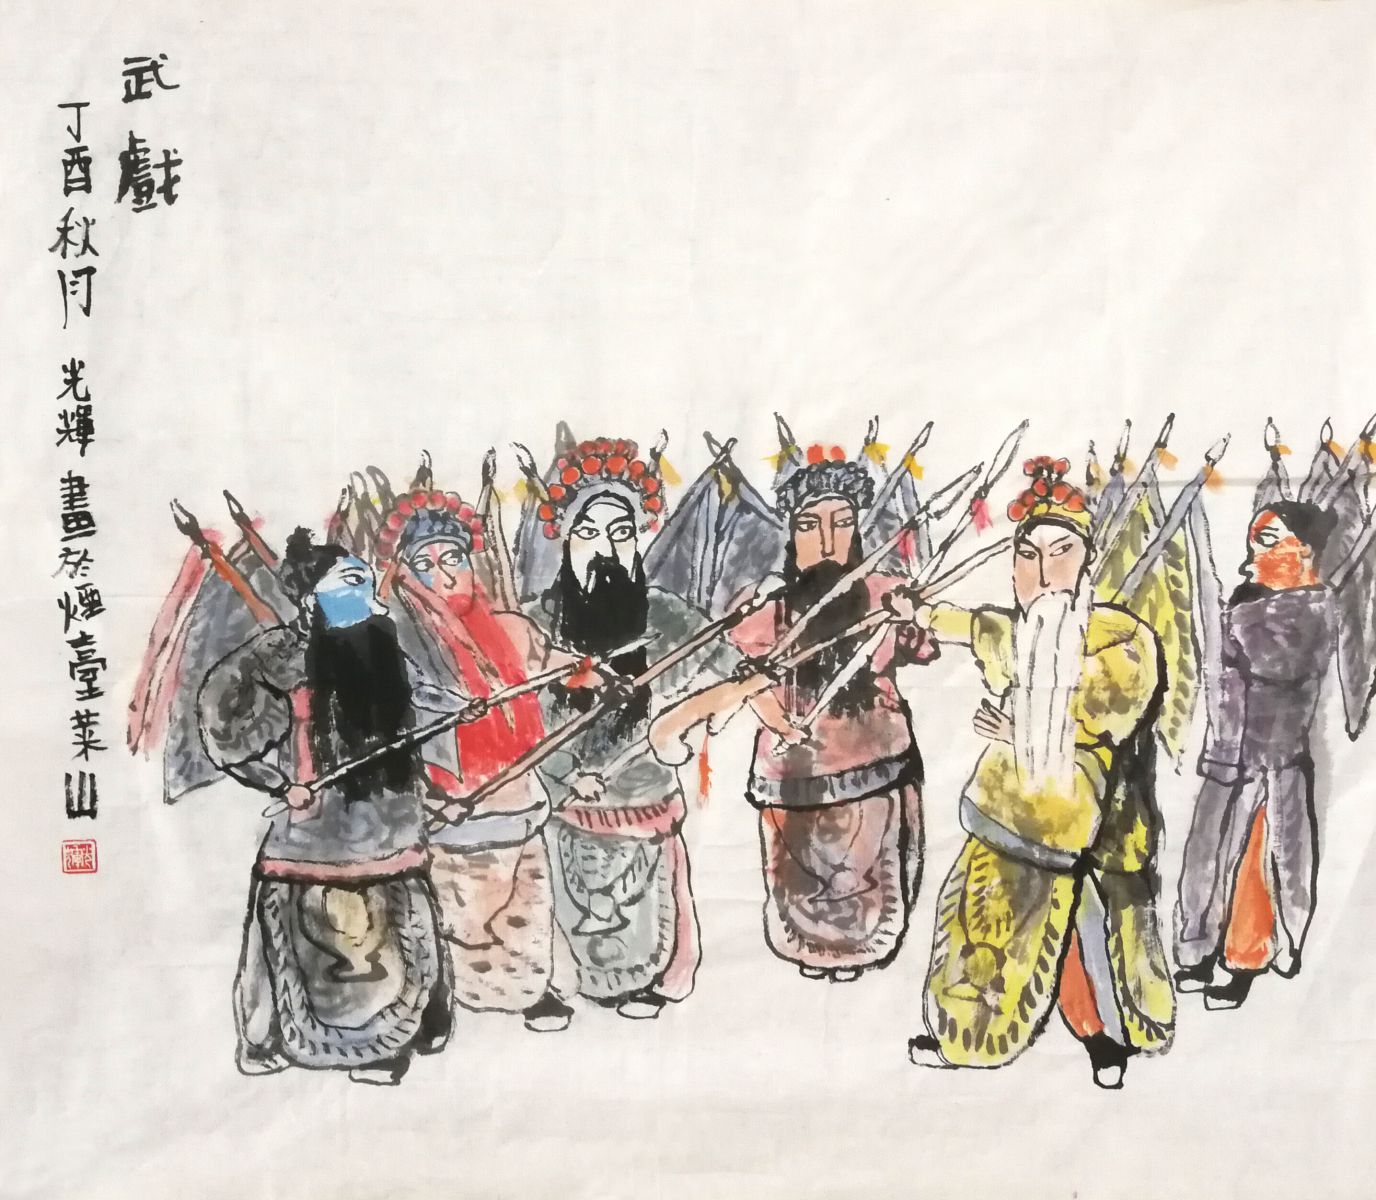 武戲
丁酉秋月 光輝畫於煙臺萊山